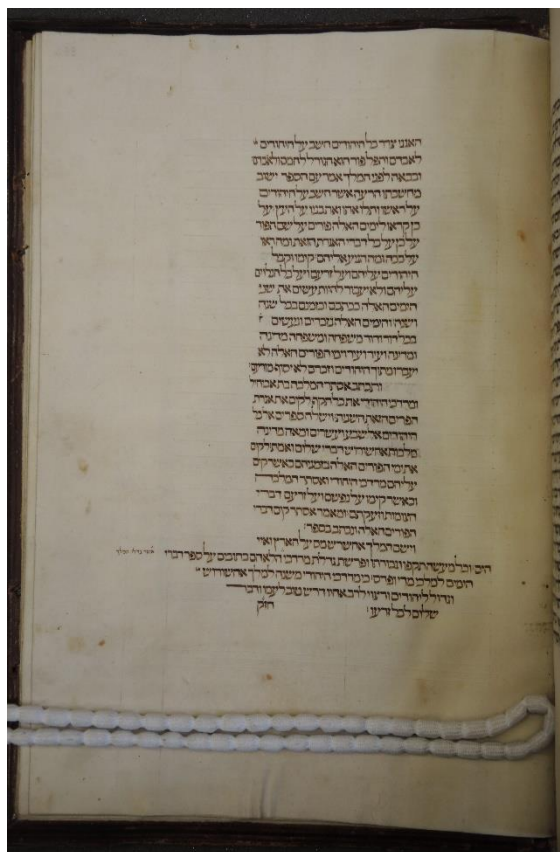 האגגי צרר כל היהודים חשב על היהודים
לאבדם והפל פור הוא הגורל להמם ולאבדם
ובבאה לפני המלך אמר עם הספר ישוב
מחשבתו הרעה אשר חשב על היהודים
על ראשו ותלו אתו ואת בניו על העץ על
כן קראו לימים האלה פורים על שם הפור
על כן על כל דברי האגרת הזאת ומה ראו
על ככה ומה הגיע אליהם קימו וקבל
היהודים עליהם ועל זרעם ועל כל הנלוים
עליהם ולא יעבור להיות עשים את שני
הימים האלה ככתבם וכזמנם בכל שנה
ושנה והימים האלה נזכרים ונעשים
בכל דור ודור משפחה ומשפחה מדינה
ומדינה ועיר ועיר וימי הפורים האלה לא
יעברו מתוך היהודים וזכרם לא יסוף מזרעם
ותכתב אסתר המלכה בת אביחיל
ומרדכי היהודי את כל תקף לקים את אגרת
הפרים הזאת השנית וישלח ספרים אל כל
היהודים אל שבע ועשרים ומאה מדינה
מלכות אחשורוש דברי שלום ואמת לקים
את ימי הפורים האלה בזמניהם כאשר קים
עליהם מרדכי היהודי ואסתר המלכה
וכאשר קימו על נפשם ועל זרעם דברי
הצומות וזעקתם ומאמר אסתר קים דברי
הפורים האלה ונכתב בספר
וישם המלך אחשרש מס על הארץ ואיי
הים וכל מעשה תקפו וגבורתו ופרשת גדלת מרדכי הלא הם כתובים על ספר דברי
אשר גדלו המלך
הימים למלכי מדי ופרס כי מרדכי היהודי משנה למלך אחשורוש
וגדול ליהודים ורצוי לרב אחיו דרש טוב לעמו ודבר
שלום לכל זרעו חזק